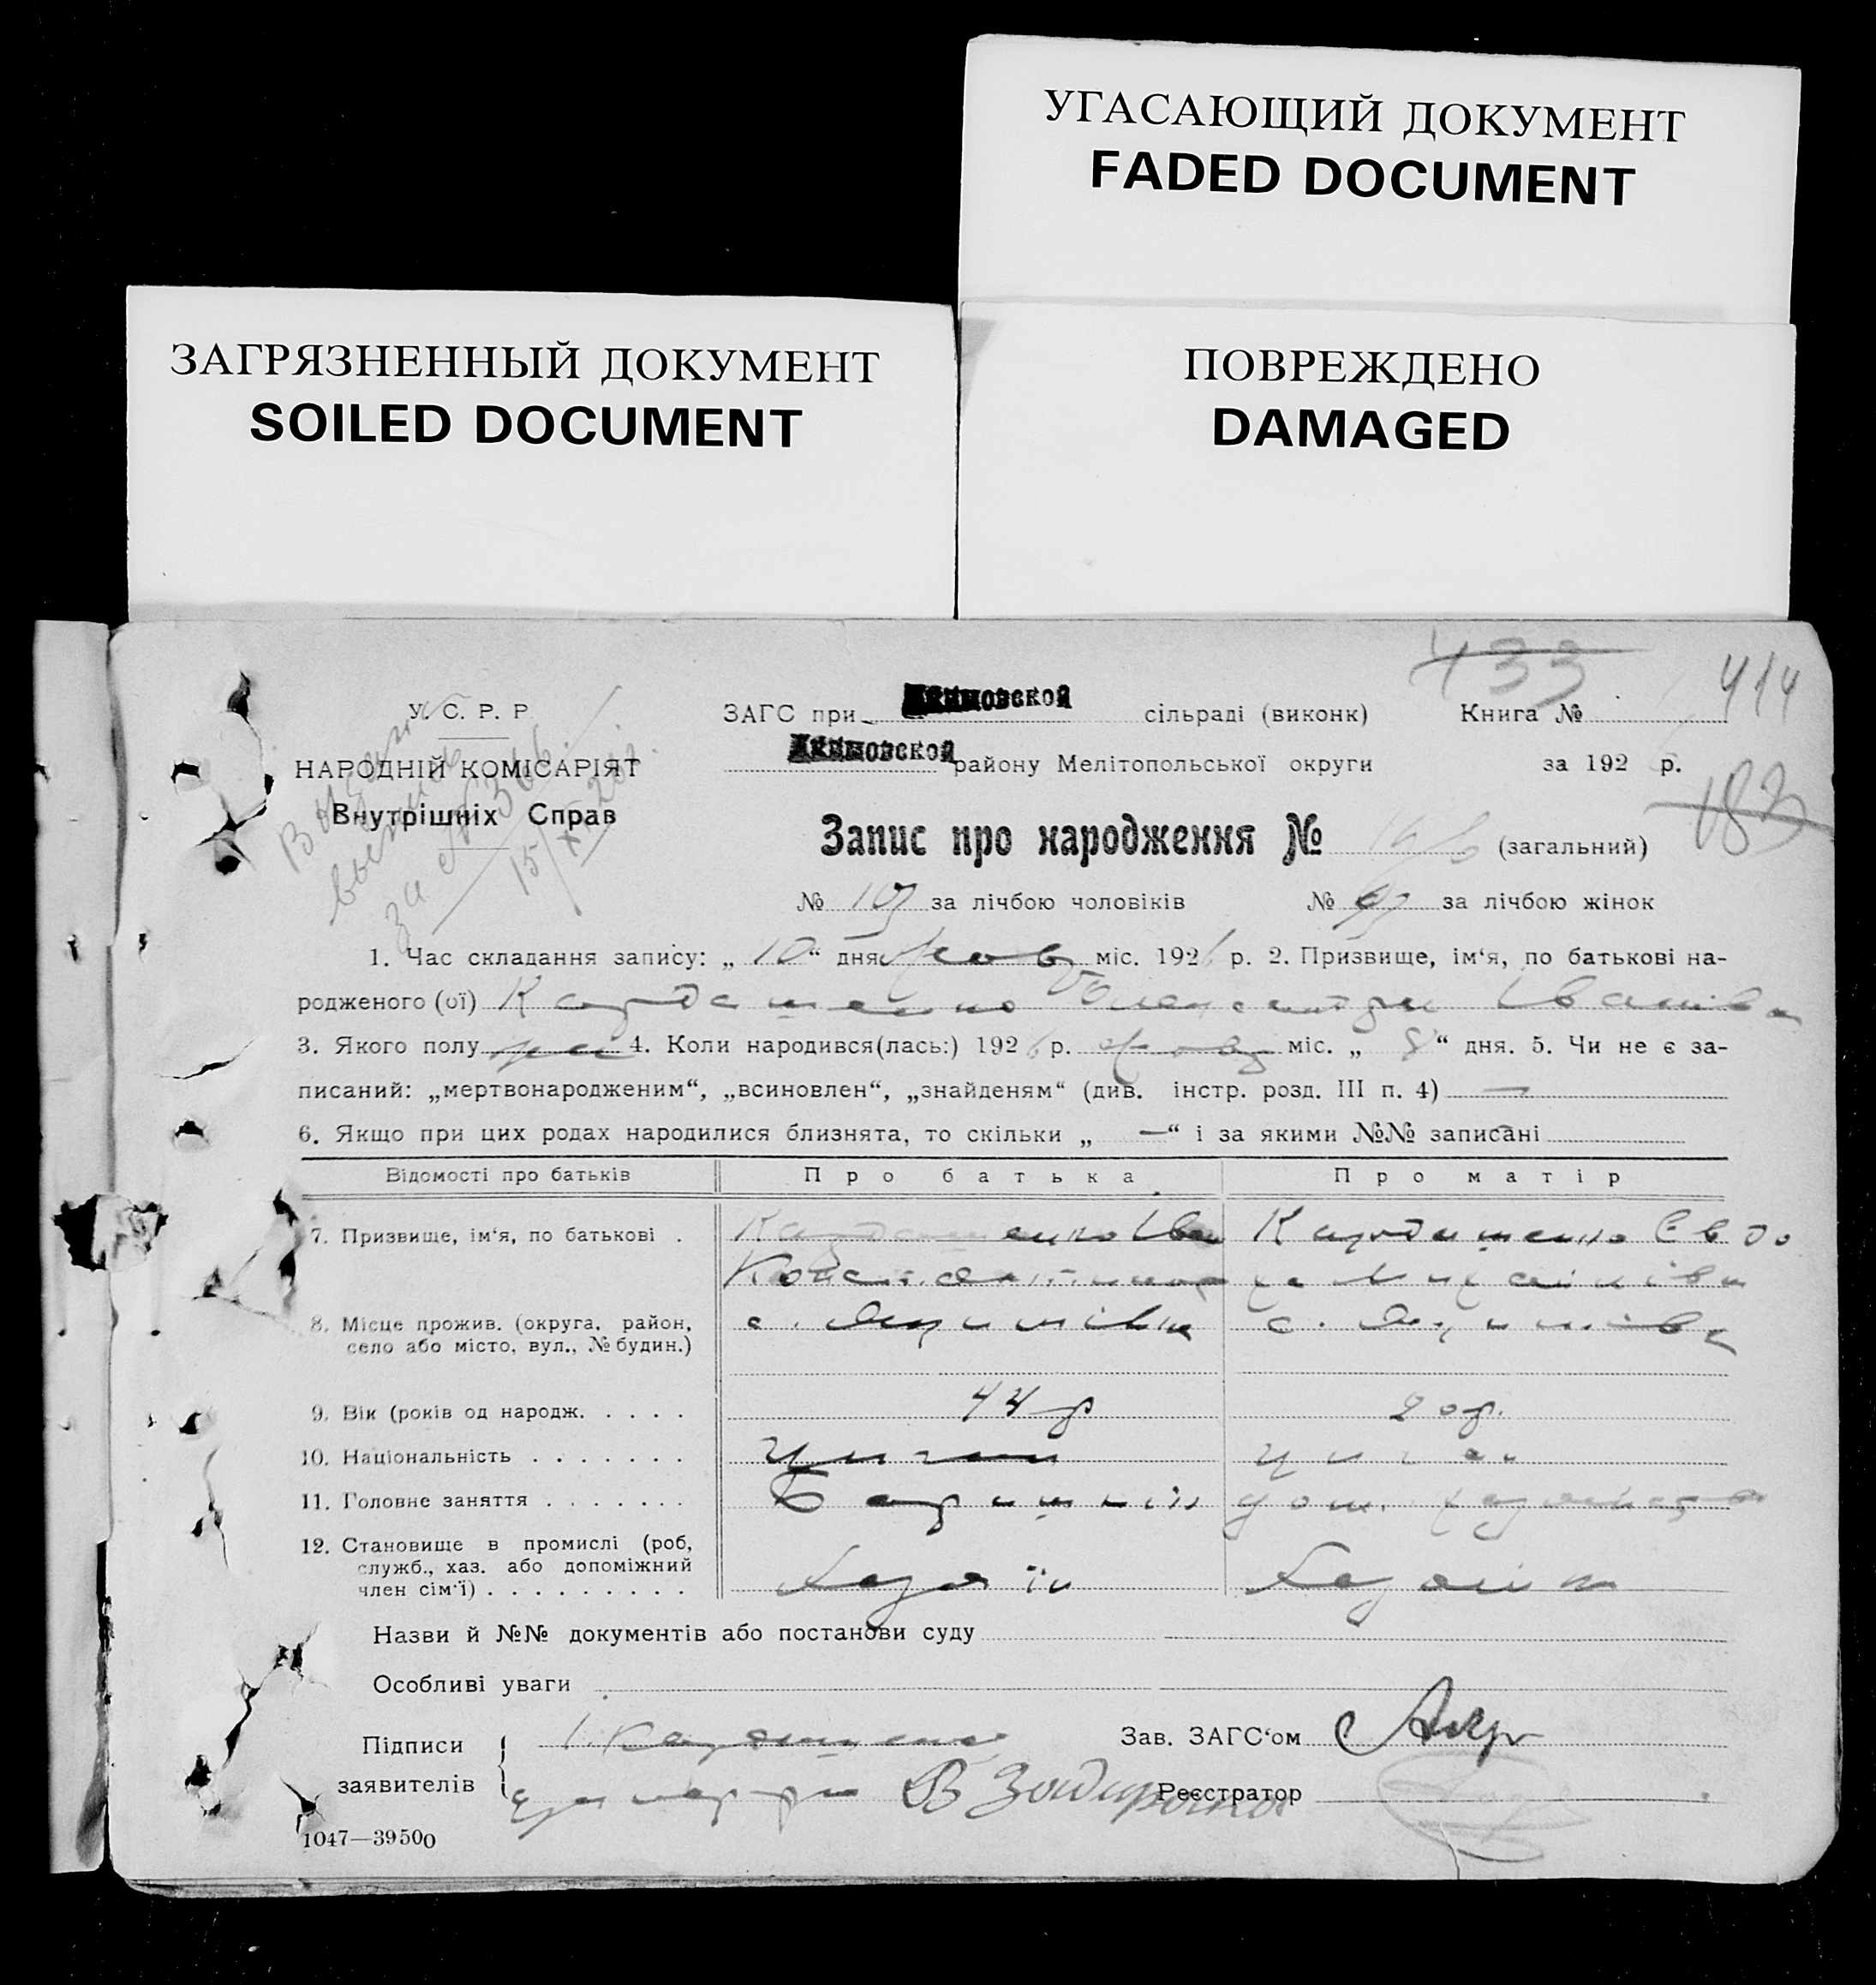 УГАСАЮЩИЙ ДОКУМЕНТ
FADED DOCUMENT
ЗАГРЯЗНЕННЫЙ ДОКУМЕНТ
SOILED DOCUMENT
ПОВРЕЖДЕНО
DAMAGED
433
414
У. С. Р. Р
НАРОДНІЙ КОМІСАРІЯТ
Внутрішніх Справ
15/XI 26г.
ЗАГС при Акимовской сільраді (виконк) Книга №
Акимовской району Мелітопольської округи за 192 р.
183
Запис про народження № (загальний)
№ за лічбою чоловіків № за лічбою жінок
1. Час складання запису: „ 10 “ дня міс. 1926 р. 2. Призвище, ім‘я, по батькові на-
родженого (ої) Кардашенко Іванівна
3. Якого полу 4. Коли народився(лась:) 1926 р. міс. „ 8 “ дня. 5. Чи не є за-
писаний: „мертвонародженим“, „всиновлен“, „знайденям“ (див. інстр. розд. III п. 4) —
6. Якщо при цих родах народилися близнята, то скільки „ — “ і за якими №№ записані
Відомості про батьків Про батька Про матір
7. Призвище, ім‘я, по батькові . Кардашенко Іван Кардашенко Євдо
Константинов ха Михайлівна
8. Місце прожив. (округа, район, с. Якимівка с. Якимівка
село або місто, вул., № будин.)
9. Вік (років од народж. . . . . 44 р 20 р.
10. Національність . . . . . . . циган циган
11. Головне заняття . . . . . . . Баришник дом. хазяйка
12. Становище в промислі (роб,
служб., хаз. або допоміжний
член сім‘ї) . . . . . . . . . Хазяїн Хазяйка
Назви й №№ документів або постанови суду
Особливі уваги
Підписи І. Кардашенко Зав. ЗАГС‘ом
заявителів В Реєстратор
1047—39500